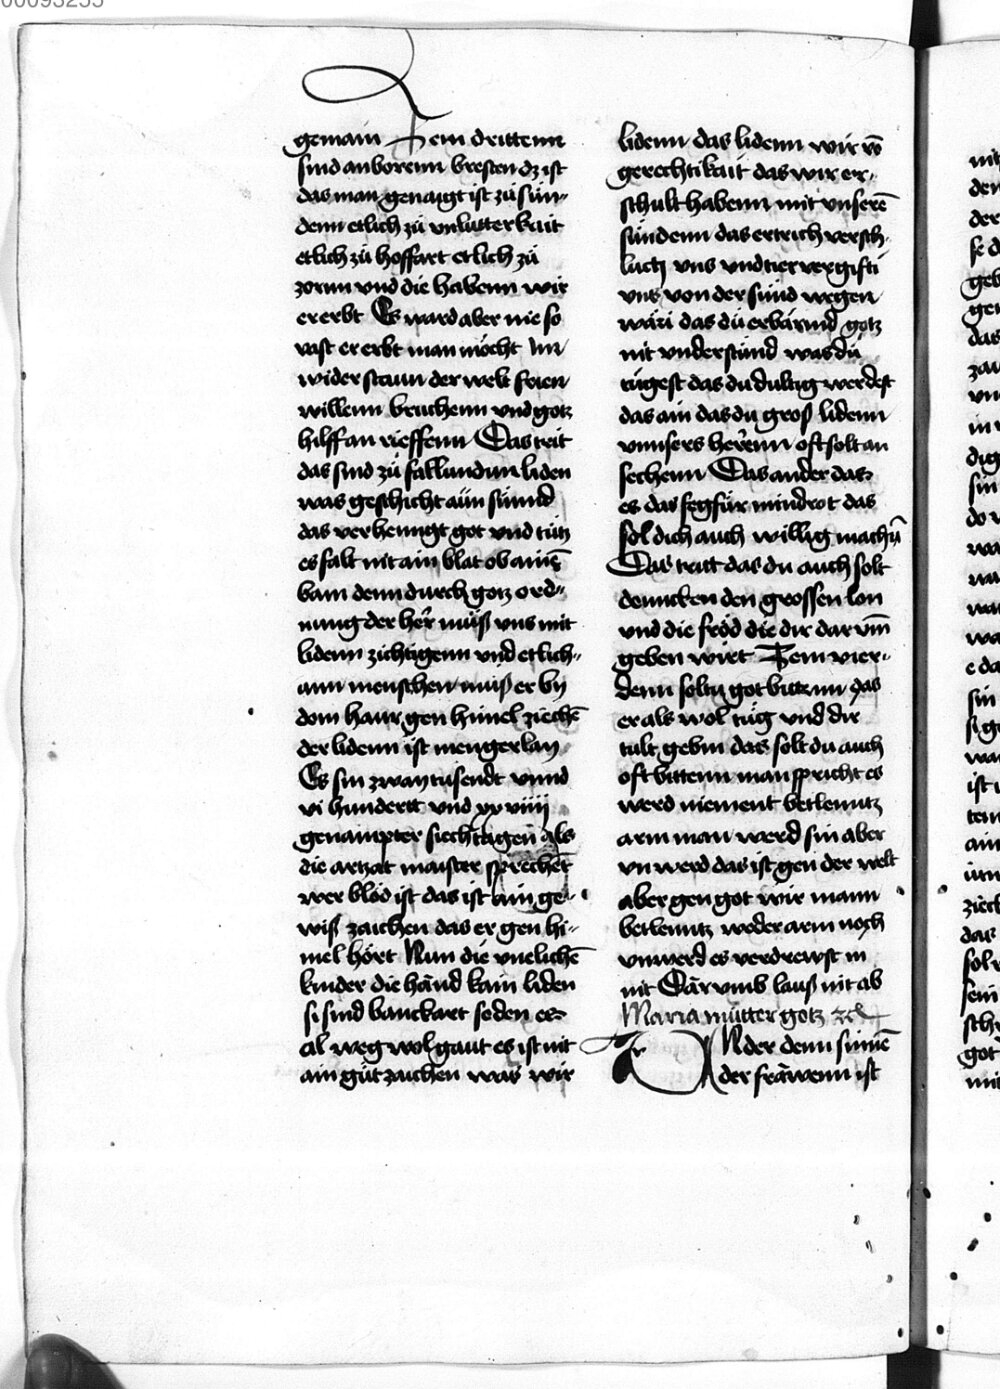 00093255
gemain Zem drittenn
sind anborenn bresten dz ist
das man genaigt ist zů sün-
denn etlich zů vnlutterkait
etlich zů hoffart etlich zů
zornn vnd die habenn wir
ererbt Es ward aber nie so
vast ererbt man möcht im
wider staun der welt freien
willenn bruchenn vnd gotz
hilff an rieffenn Das trit
das sind zů fallund un liden
was geschicht aün sünnd
das verhenngt got vnd tůtz
es falt nit ain blat ob ainē
bam denn durch gotz ord-
nung der her můß vns mit
lidenn zichtigenn vnd etlich-
ann menschen můß er by
dom haur gen himel ziechē
der lidenn ist mengerlay
Es sin zway tusendt vnnd
vi hundertt vnd xxviiij
genampter siechtagen als
die artzat maister sprechēt
wer blöd ist das ist ain ge-
wiß zaichen das er gen hi-
mel hört Nun die vnelichē
kinder die händ kain liden
si sind banckart seden er
al weg wol gaut es ist nit
ain gůt zaichen was wir
lidenn das lidenn wir vō
gerechtikait das wir er-
schult habenn mit vnserē
sündenn das ertrich versch-
luctz vns vnd tier vergifti
vns von der sünd wegen
wäri das dü erbärmd gotz
nit vnderstünd was dü
tügest das du dultig werdest
das ain das du groß lidenn
vnnsers herenn oft solt an
sechenn Das ander das
es das fegfür mindrot das
sol dich auch willig machū
Das tritt das du auch solt
denncken den grossen lon
vnd die fröd die dir dar vm̄
geben wirt Zem vier-
denn soltu got bittenn das
er als wol tüg vnd dir
tult gebin das solt du auch
oft bittenn man spricht es
werd niement betlenntz
arm man werd sin aber
vn werd das ist gen der welt
aber gen got wir mann
betlenntz weder arm noch
vnwerd es verdrewst in
nit Där vmb lauß nit ab
Maria mütter gotz
ANder denn sünnē
der fräwenn ist